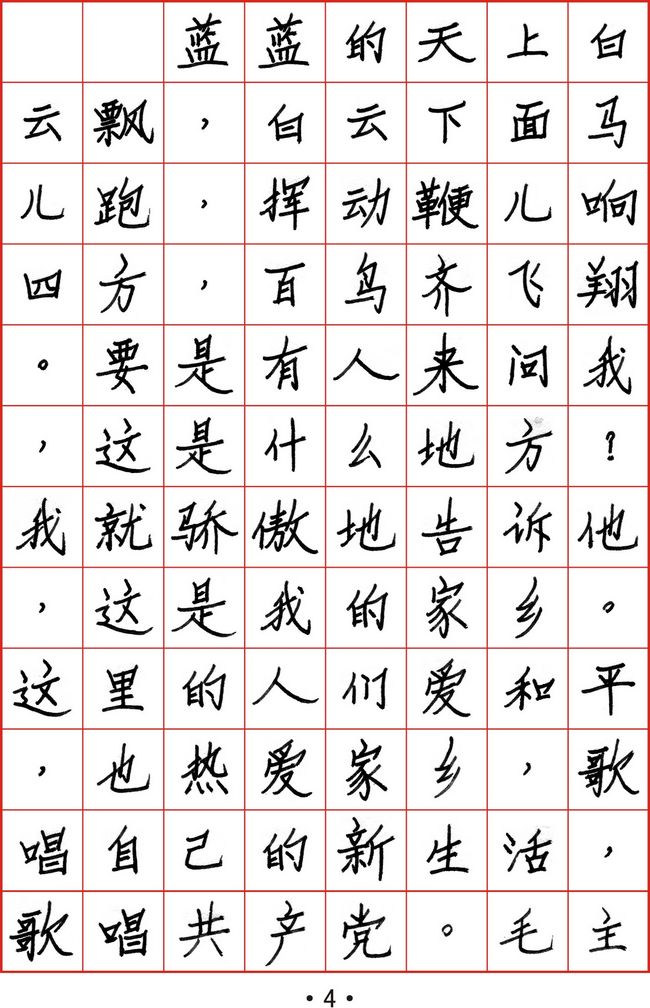 蓝蓝的天上白
云飘，白云下面马
儿跑，挥动鞭儿响
四方，百鸟齐飞翔
。要是有人来问我
，这是什么地方？
我就骄傲地告诉他
，这是我的家乡。
这里的人们爱和平
，也热爱家乡，歌
唱自己的新生活，
歌唱共产党。毛主
• 4 •